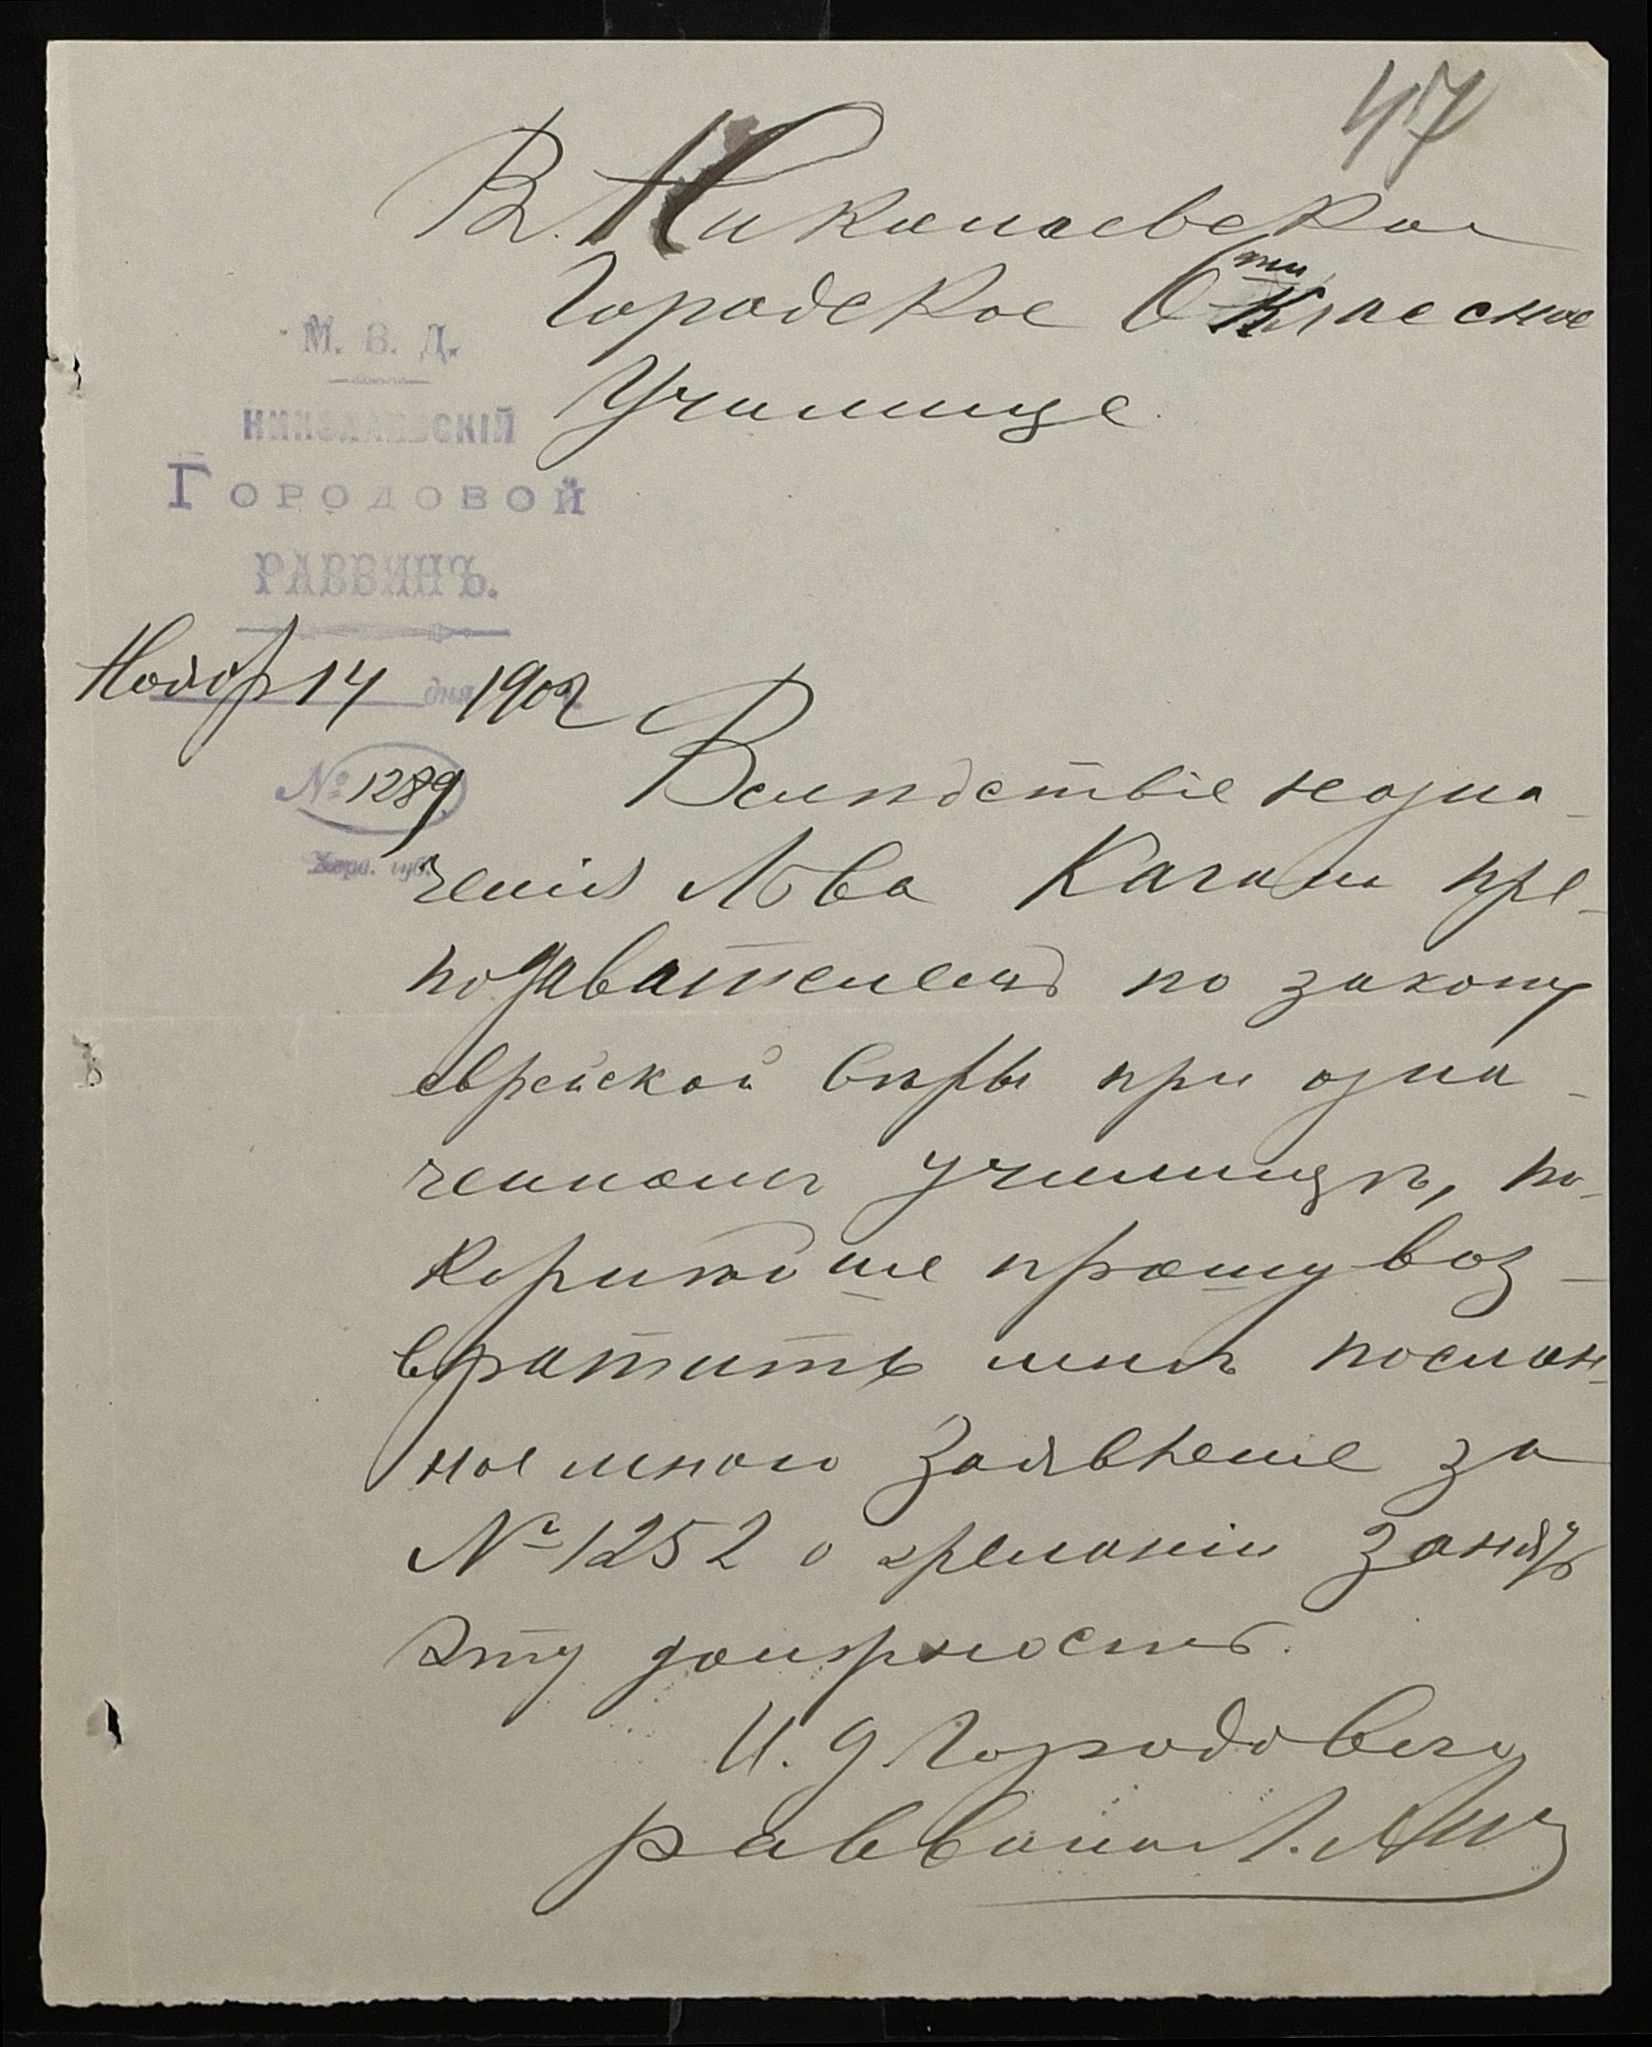 47
В. Николаевское
Городское 6 ти Классное
Училище.
М. В. Д.
НИКОЛАЕВСКІЙ
ГОРОДОВОЙ
РАВВИНЪ.
Ноябр 14 дня 1902
№ 1289
Херс. губ.
Вслѣдствіе назна-
ченія Лѣва Кагана пре-
подавателемъ по закону
еврейской вѣры при озна-
ченномъ училищѣ, по-
корнѣйше прошу воз-
вратить мнѣ послан-
ное мною заявленіе за
№ 1252 о желаніи занять
эту должность.
И. д. Городового
раввина Л.